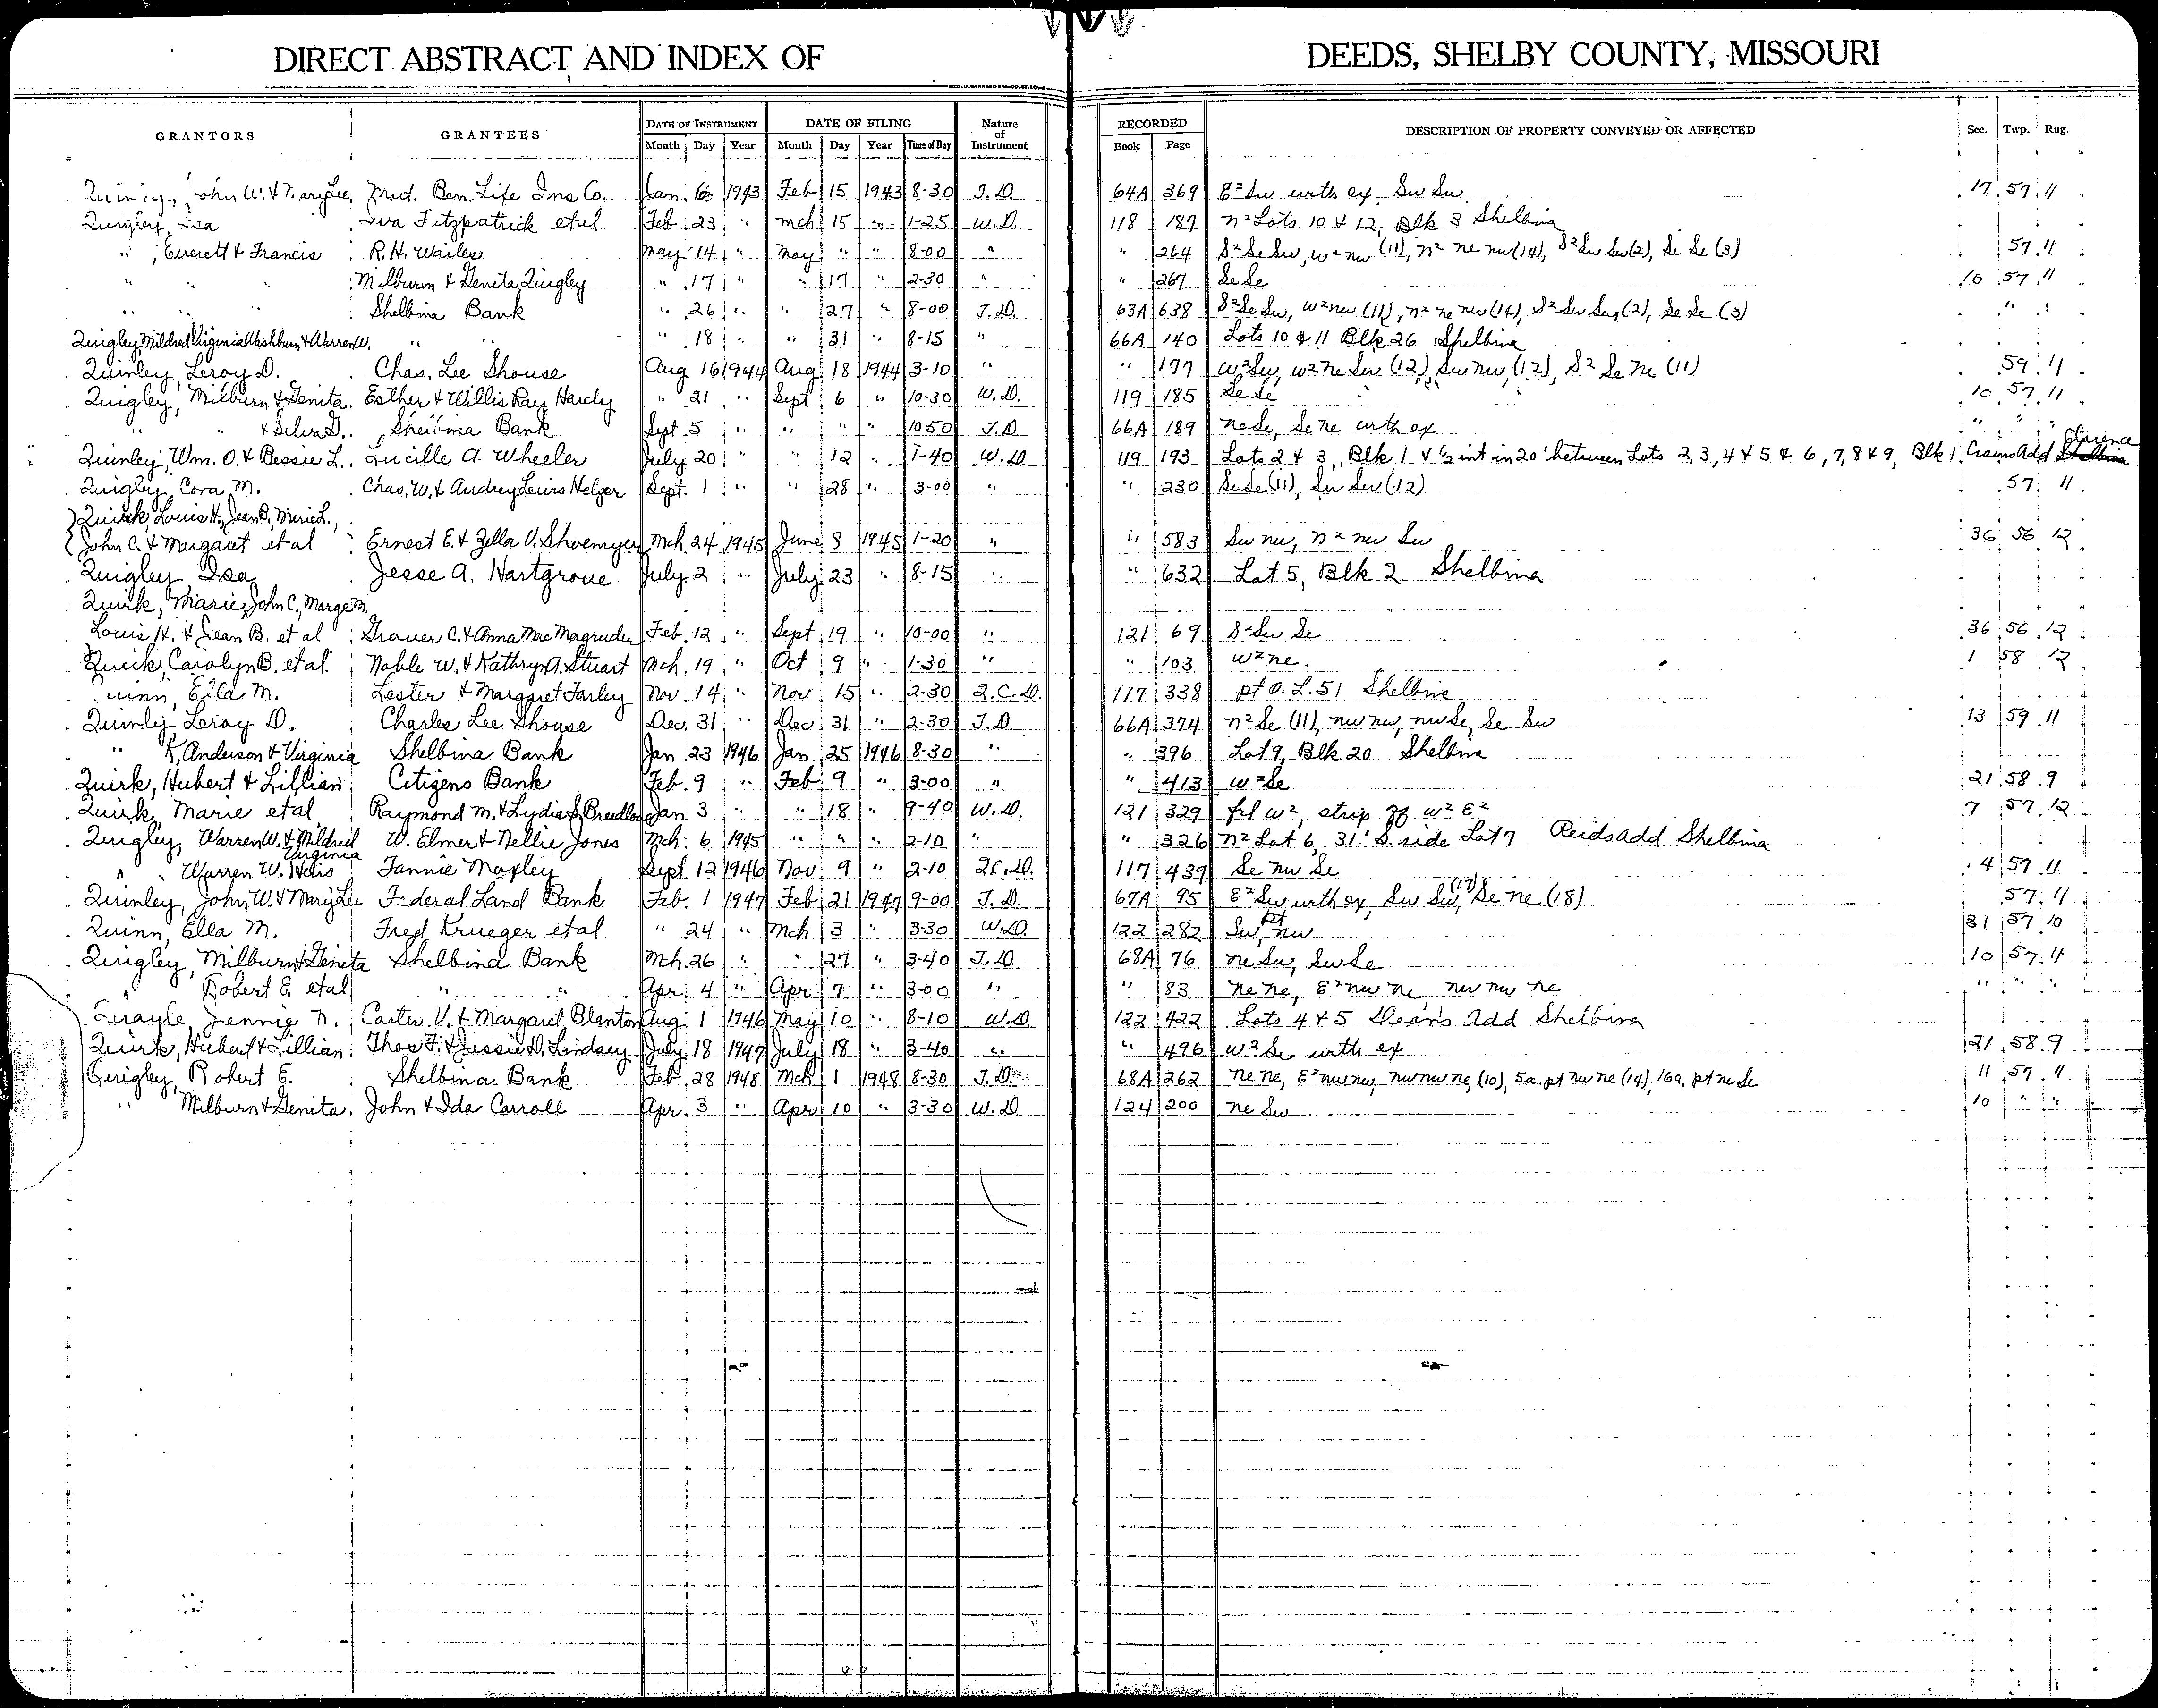 DIRECT ABSTRACT AND INDEX OF DEEDS, SHELBY COUNTY, MISSOURI
GRANTORS GRANTEES DATE OF INSTRUMENT DATE OF FILING Nature of Instrument RECORDED DESCRIPTION OF PROPERTY CONVEYED OR AFFECTED Sec. Twp. Rng.
Month Day Year Month Day Year Time of Day Book Page
John W. & Mary Lee Mut. Ben. Life Ins Co. Jan 6 1943 Feb 15 1943 8-30 T.D. 64A 369 E² Sw with ex, Sw Sw 17 57 11
Quigley, Isa Iva Fitzpatrick etal Feb 23 " Mch 15 " 1-25 W.D. 118 187 N² Lots 10 & 12, Blk 3 Shelbina
" , Everett & Francis R.H. Wailes May 14 " May " " 8-00 " " 264 S² Se Sw, W² nw (11), n² ne nw (14), S² Sw Sw (2), Se Se (3) 57 11
" " Milburn & Genita Quigley " 17 " " 17 " 2-30 " " 267 Se Se 10 57 11
" " Shelbina Bank " 26 " " 27 " 8-00 T.D. 63A 638 S² Se Sw, W² nw (11), n² ne nw (14), S² Sw Sw (2), Se Se (3) " "
Quigley, Mildred Virginia Washburn & Warren W. " " " 18 " " 31 " 8-15 " 66A 140 Lots 10 & 11 Blk 26 Shelbina
Quinley, Leroy D. Chas. Lee Shouse Aug 16 1944 Aug 18 1944 3-10 " " 177 W² Sw, W² ne Sw (12), Sw nw, (12), S² Se ne (11) 59 11
Quigley, Milburn & Genita Esther & Willis Ray Hardy " 21 " Sept 6 " 10-30 W.D. 119 185 Se Se 10 57 11
" " Shelbina Bank Sept 5 " " " " 10 50 T.D. 66A 189 ne Se, Se ne with ex " " "
Quinley, Wm. O. & Bessie L. Lucille A. Wheeler July 20 " " 12 " 1-40 W.D. 119 193 Lots 2 & 3, Blk 1 & ½ int in 20' between Lots 2, 3, 4 & 5 & 6, 7, 8 & 9, Blk 1 Crains Add Clarence
Quigley, Cora M. Chas. W. & Audrey Lewis Helger Sept. 1 " " 28 " 3-00 " " 230 Se Se (11), Sw Sw (12) 57 11
Quirk, Louis H., Jean B., Marie L.,
John C. & Margaret et al Ernest E. & Zella V. Shoemyer Mch 24 1945 June 8 1945 1-20 " " 583 Sw nw, n² nw Sw 36 56 12
Quigley Isa Jesse A. Hartgrove July 2 " July 23 " 8-15 " " 632 Lot 5, Blk 2 Shelbina
Quirk, Marie, John C., Marge M.
Louis H. & Jean B. et al Grover C. & Anna Mae Magruder Feb 12 " Sept 19 " 10-00 " 121 69 S² Sw Se 36 56 12
Quirk, Carolyn B. et al. Noble W. & Kathryn A. Stuart Mch 19 " Oct 9 " 1-30 " " 103 W² ne. 1 58 12
Quinn, Ella M. Lester & Margaret Farley Nov 14 " Nov 15 " 2-30 Q.C.D. 117 338 pt O.L. 51 Shelbina
Quinly Leroy D. Charles Lee Shouse Dec 31 " Dec 31 " 2-30 T.D. 66A 374 n² Se (11), nw nw, nw Se, Se Sw 13 59 11
" K. Anderson & Virginia Shelbina Bank Jan 23 1946 Jan 25 1946 8-30 " " 396 Lot 9, Blk 20 Shelbina
Quirk, Hubert & Lillian Citizens Bank Feb 9 " Feb 9 " 3-00 " " 413 W² Se 21 58 9
Quirk, Marie et al Raymond M. & Lydia Jan 3 " " 18 " 9-40 W.D. 121 329 frl W², strip off W² E² 7 57 12
Quigley, Warren W. & Mildred Virginia W. Elmer & Nellie Jones Mch 6 1945 " " " 2-10 " " 326 N² Lot 6, 31' S. side Lot 7 Reids Add Shelbina
" Warren W. Fannie Moxley Sept 12 1946 Nov 9 " 2-10 Q.C.D. 117 439 Se nw Se 4 57 11
Quinley, John W. & Mary Lee Federal Land Bank Feb 1 1947 Feb 21 1947 9-00 T.D. 67A 95 E² Sw with ex, Sw Sw, (17) Se ne (18) 57 11
Quinn, Ella M. Fred Krueger et al " 24 " Mch 3 " 3-30 W.D. 122 282 Sw, pt nw 31 57 10
Quigley, Milburn & Genita Shelbina Bank Mch 26 " " 27 " 3-40 T.D. 68A 76 ne Sw, Sw Se 10 57 11
" Robert E. et al " " Apr 4 " Apr 7 " 3-00 " " 83 ne ne, E² nw ne, nw nw ne " " "
Quayle, Jennie N. Carter V. & Margaret Blanton Aug 1 1946 May 10 " 8-10 W.D. 122 422 Lots 4 & 5 Dean's Add Shelbina
Quirk, Hubert & Lillian Thos F. & Jessie D. Lindsey July 18 1947 July 18 " 3-40 " " 496 W² Se with ex 21 58 9
Quigley, Robert E. Shelbina Bank Feb 28 1948 Mch 1 1948 8-30 T.D. 68A 262 ne ne, E² nw nw, nw nw ne, (10), 5a. pt nw ne (14), 16a. pt ne Se 11 57 11
" Milburn & Genita. John & Ida Carroll Apr 3 " Apr 10 " 3-30 W.D. 124 200 ne Sw 10 " "